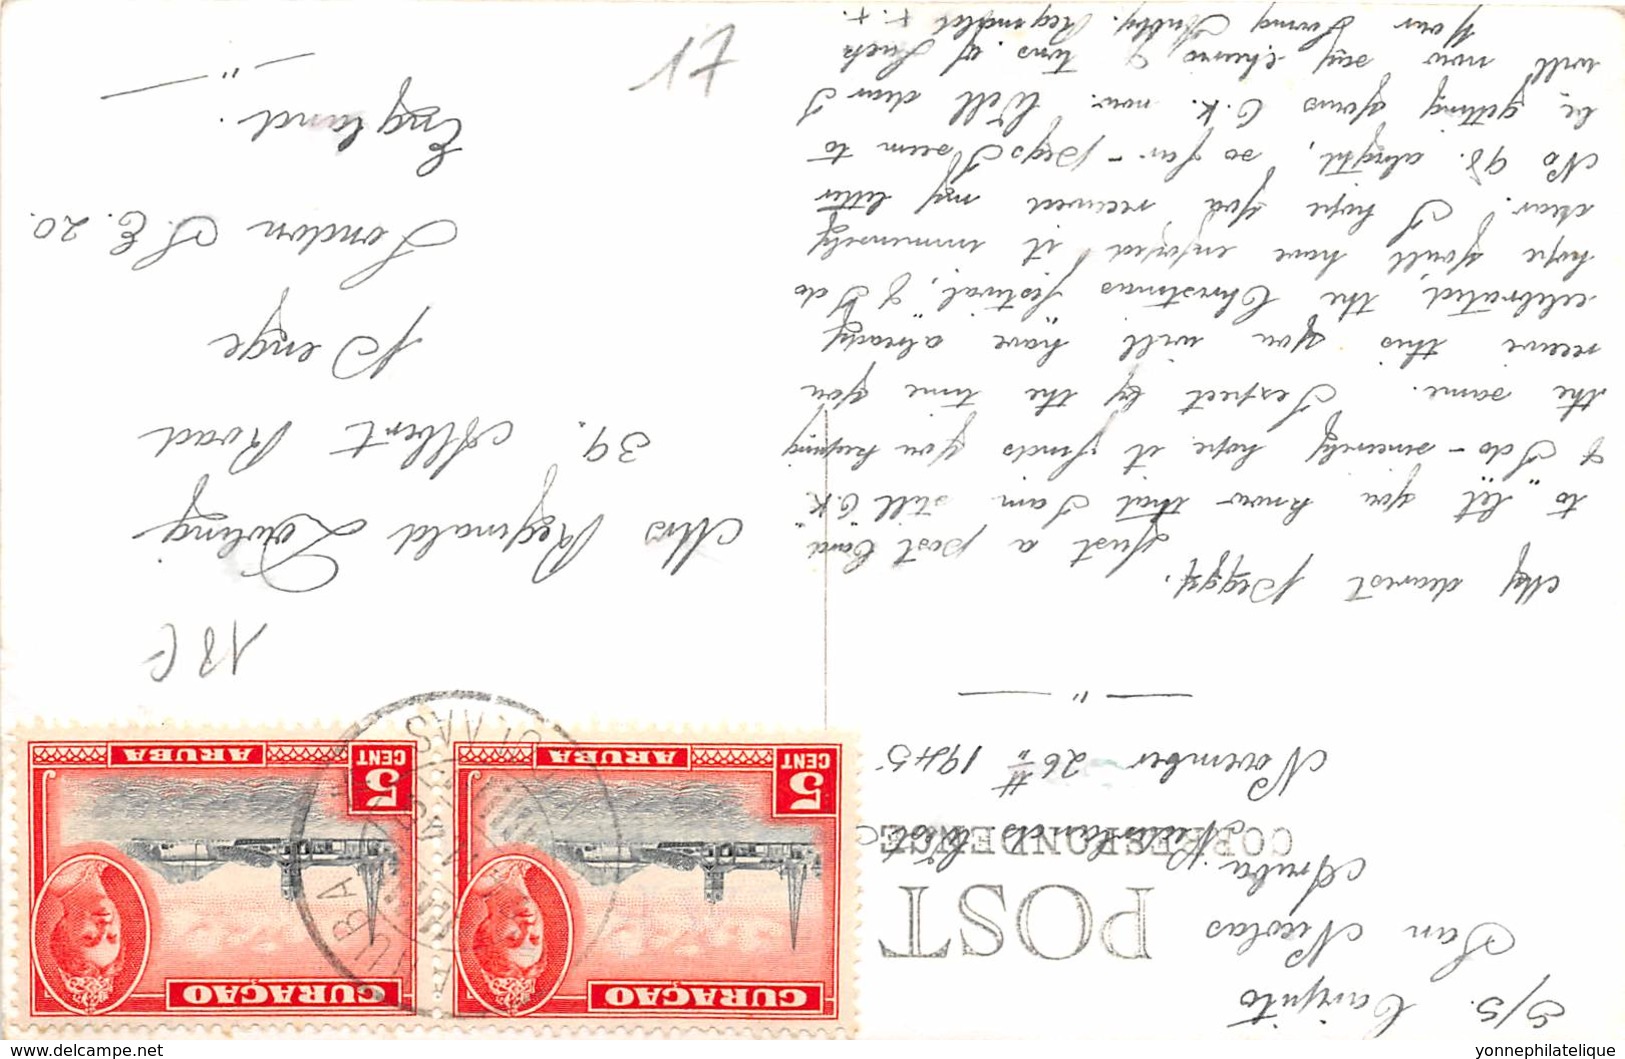 S/S. Cairjuto
San Nicolas
Aruba. Netherlands West
November 26th 1945
POST
CORRESPONDENCE
My dearest Peggy.
Just a post card
to "let you know that I am still "O.K."
& I do - sincerely hope it finds you keeping
the same. I expect by the time you
receive this you will "have" already
celebrated the Christmas festival, & I do
hope you'll have enjoyed it immensely
dear. I hope you received my letter
No 98. alright, so far - Pegs I seem to
be getting yours O.K. now. Well dear I
will now say cheerio, & tons of luck
Your loving hubby. Reginald x.x
CURAÇAO
5
CENT
ARUBA
CURAÇAO
5
CENT
ARUBA
18 E
Mrs Reginald Dowling
39. Albert Road
Penge
London S.E.20.
England.
17
yonnephilatelique
delcampe.net